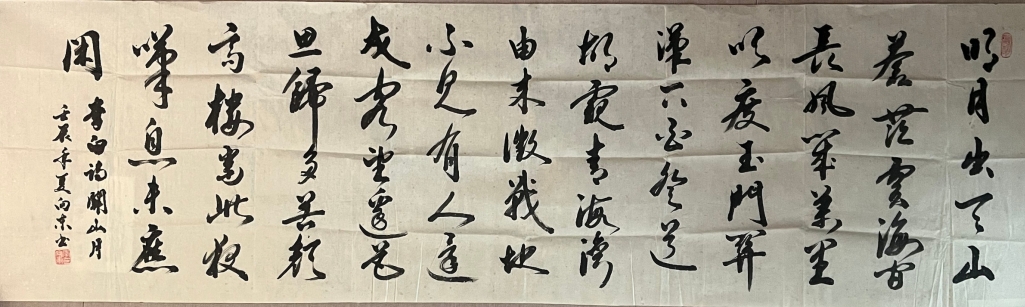 明月出天山
蒼茫雲海間
長風幾萬里
吹度玉門關
漢下白登道
胡窺青海灣
由來徵戰地
不見有人還
戍客望邊色
思歸多苦顏
高樓當此夜
嘆息未應
閑
李白詩關山月
壬辰年夏向東書